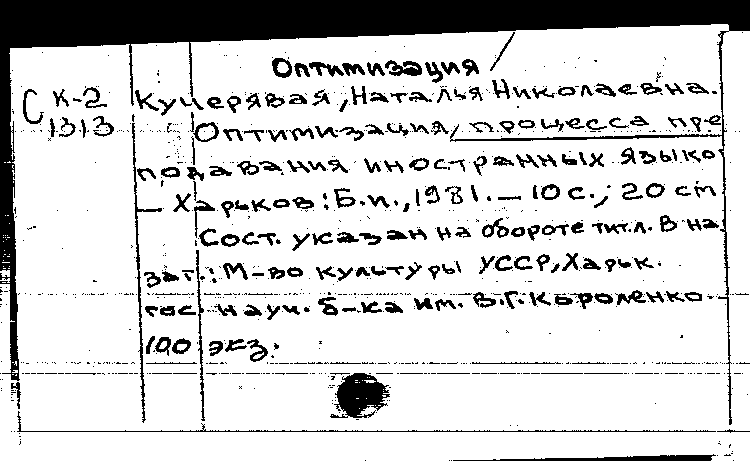 Оптимизация /
С К-2 Кучерявая, Наталья Николаевна.
1313 Оптимизация / процесса пре
подавания иностранных языко
— Харьков: Б.и., 1981. — 10 с.; 20 см
Сост. указан на обороте тит.л. В на
заг.: М-во культуры УССР, Харьк.
гос. науч. б-ка им. В.Г. Короленко.
100 экз.